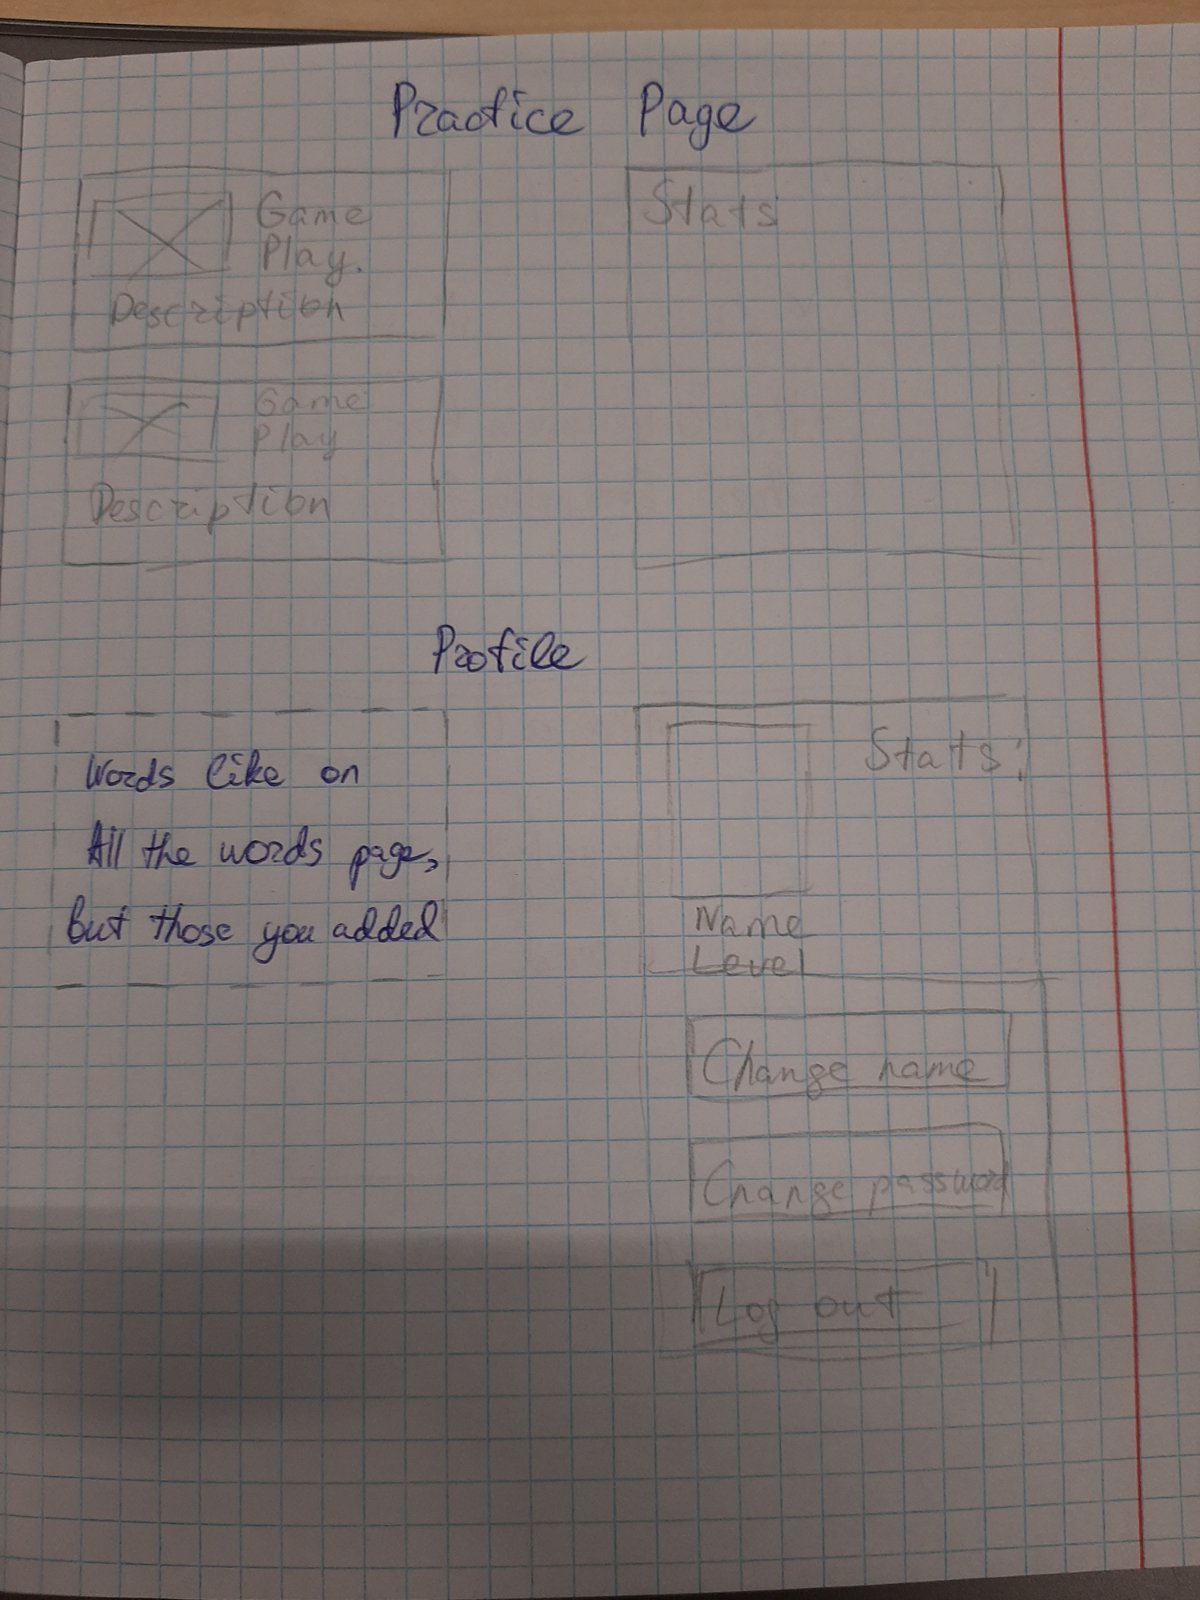 Practice Page
Game
Play.
Description
Stats
Game
Play
Description
Profile
Words like on
All the words page,
but those you added
Stats:
Name
Level
Change name
Change password
Log out